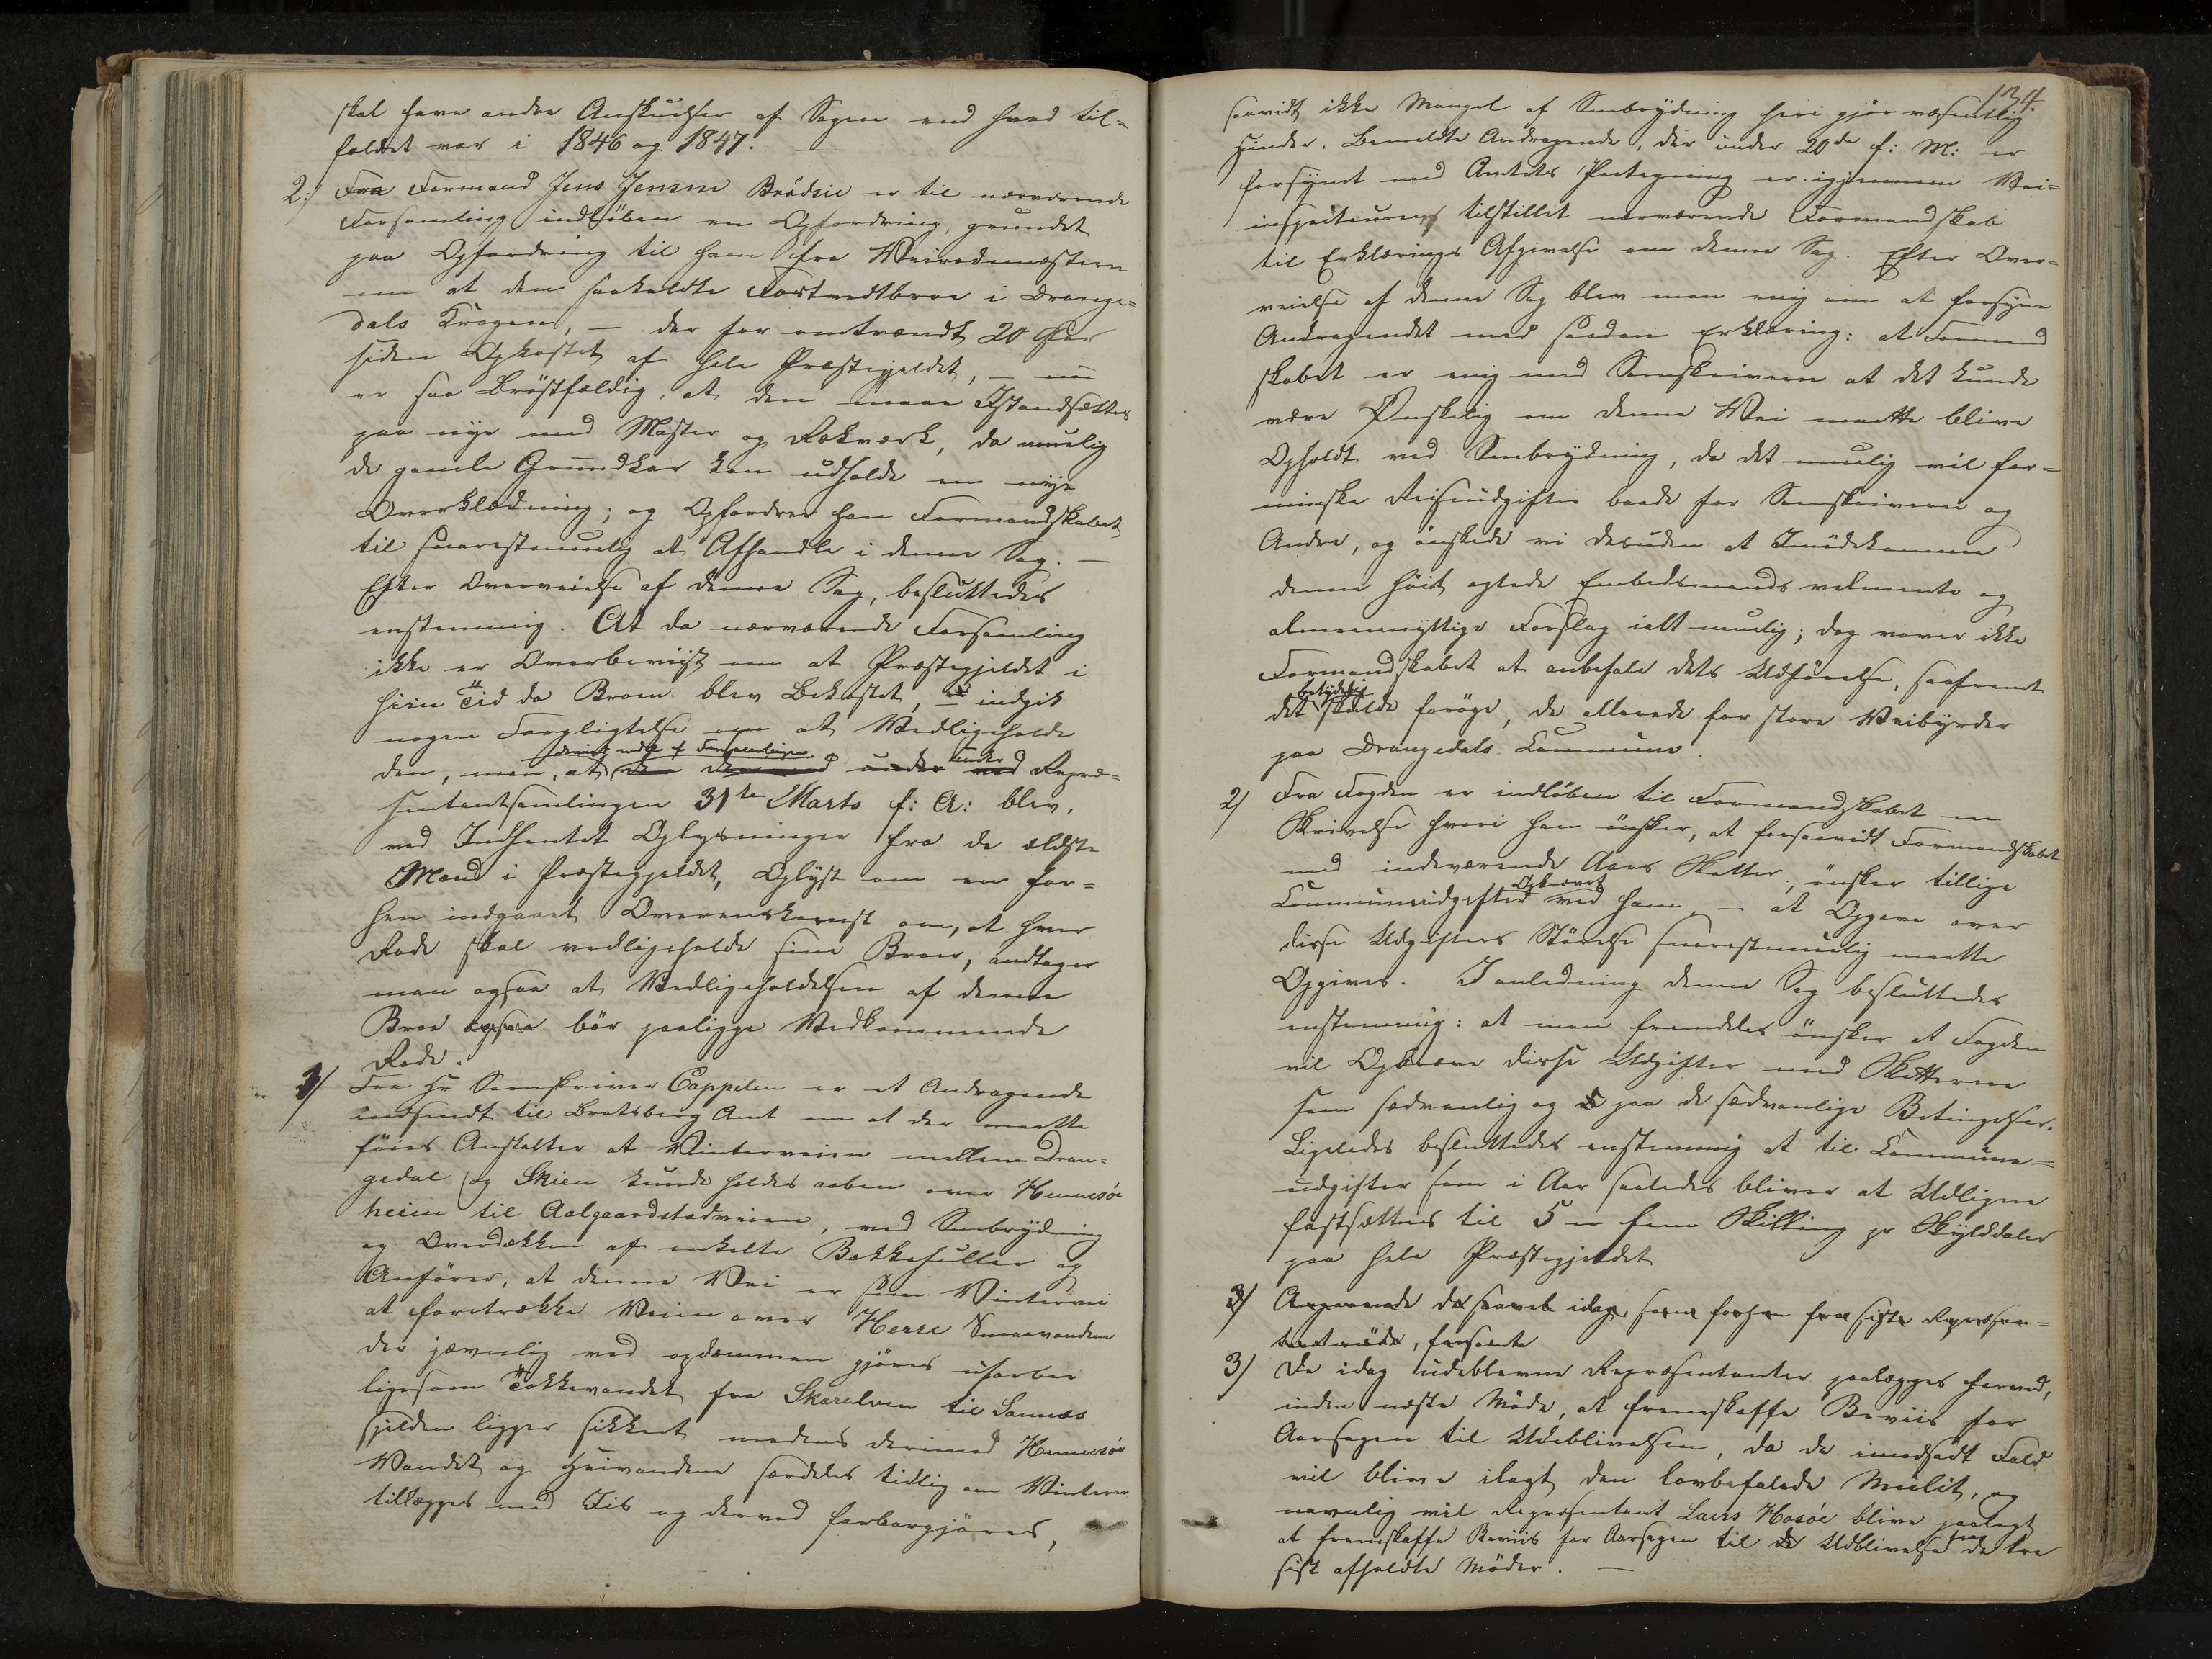 skal have andre Anskuelser af Sagen end hvad til-
faldet var i 1846 og 1847.
2:) Fra Formand Jens Jensen Brødsie er til nærværende
Forsamling indløben en Opfordring, grundet
paa Opfordring til ham fra Veirodemesteren
om at den saakaldte Fostvedtbroe i Drange-
dals Krogen, — der for omtrendt 20 Aar
siden Opkostet af hele Præstegjeldet, — nu
er saa Brøstfældig, at den maae Istandsættes
paa nye med Master og Rækværk, da muelig
de gamle Grundkar kan udholde en nye
Overklædning; og Opfordrer han Formandskabet
til snarestmuelig at Afhandle i denne Sag. —
Efter Overveielse af denne Sag, besluttedes
enstemmig. At da nærværende Forsamling
ikke er Overbeviist om at Præstegjeldet i
hiin Tid da Broen blev Bekostet, indgik
nogen Forpligtelse om at Vedligeholde
den, men, at under Repræ-
sentantsamlingen 31te Marts f: A: blev,
ved Indhentet Oplysninger fra de ældste
Mænd i Præstegjeldet, Oplyst om en for-
hen indgaaet Overenskomst om, at hver
Rode skal vedligeholde sine Broer, antager
man ogsaa at Vedligeholdelsen af denne
Broe ogsaa bør paaligge Vedkommende
Rode.
1/ Fra Hr Sorenskriver Cappelen er et Andragende
indsendt til Bratsberg Amt om at der maatte
føies Anstalter at Vinterveien mellem Dran-
gedal og Skien kunde holdes aaben over Hennesøe
heien til Aalgaardstadveien, ved Snebrydning
og Overdækken af enkelte Bækkehuller og
Anfører, at denne Vei er som Vintervei
at foretrække Veien over Herre Smaavandene
der jævnlig ved opdemmen gjøres ufarber
ligesom Tokkevandet fra Skarelven til Sannæs
sjelden ligger sikkert medens derimod Hennesøe
Vandet og Heivandene særdeles tidlig om Vinteren
tillægges med Iis og derved farbargjøres,
134.
saavidt ikke Mangel af Snebrydning heri gjør væsentlig
Hinder. Bemeldte Andragende, der under 20de f: M: er
forsynet med Amtets Paategning er igjennem Vei-
inspecteuren tilstillet nærværende Formandskab
til Erklærings Afgivelse om denne Sag. Efter Over-
veielse af denne Sag blev man enig om at forsyne
Andragendet med saadan Erklæring: at Formand
skabet er enig med Sorenskriveren at det kunde
være Ønskelig om denne Vei maatte blive
Opholdt ved Snebrydning, da det muelig vil for-
mindske Reiseudgifter baade for Sorenskriveren og
Andre, og ønskede vi desuden at Imødekomme
denne høit agtede Embedsmands velmeente og
almeennyttige Forslag ialt muelig; dog vover ikke
Formandskabet at anbefale dets Udførelse, saafremt
betydelig
det skulde forøge, de allerede for store Veibyrder
paa Drangedals Commune.
2/ Fra Fogden er indløben til Formandskabet en
Skrivelse hvori han ønsker, at forsaavidt Formandskabet
med indeværende Aars Skatter, ønsker tillige
Opkrævet
Communeudgifter ved ham, — at Opgave over
disse Udgifters Størrelse snarestmuelig maatte
Opgives. I anledning denne Sag besluttedes
enstemmig: at man fremdeles ønsker at Fogden
vil Opkræve disse Udgifter med Skatterne
som sædvanlig og paa de sædvanlige Betingelser.
Ligeledes besluttedes enstemmig at til Commune-
udgifter som i Aar saaledes bliver at Udligne
fastsættes til 5 er fem Skilling pr Skylddaler
paa hele Præstegjeldet
3/ Angaaende da saavel idag, som forhen fra siste Repræsen-
tantmøde, forsømte
3/ De idag udeblevne Repræsentanter paalægges herved,
inden næste Møde, at fremskaffe Beviis for
Aarsagen til Udeblivelsen, da de imodsadt Fald
vil blive ilagt den lovbefalede Mulct, og
navnlig vil Repræsentant Laers Hosøe blive paalagt
at fremskaffe Beviis for Aarsagen til Udeblivelse fra de tre
sist afholdte Møder. —